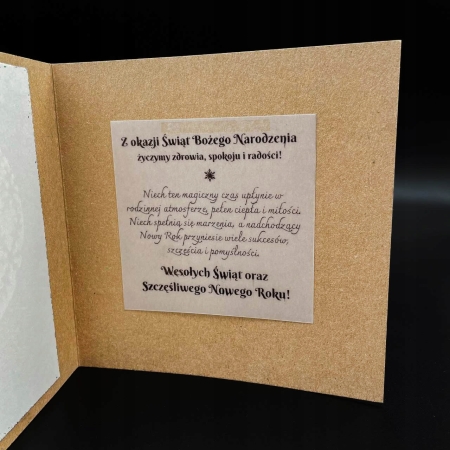 Z okazji Świąt Bożego Narodzenia
życzymy zdrowia, spokoju i radości!
Niech ten magiczny czas upłynie w
rodzinnej atmosferze, pełen ciepła i miłości.
Niech spełnią się marzenia, a nadchodzący
Nowy Rok przyniesie wiele sukcesów,
szczęścia i pomyślności.
Wesołych Świąt oraz
Szczęśliwego Nowego Roku!